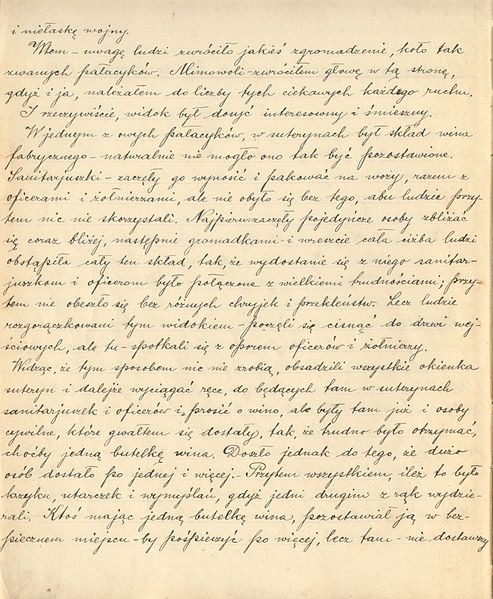 i niełaskę wojny.
Wtem – uwagę ludzi zwróciło jakieś zgromadzenie, koło tak
zwanych pałacyków. Mimowoli – zwróciłem głowę w tą stronę,
gdyż i ja, należałem do liczby tych ciekawych każdego ruchu.
I rzeczywiście, widok był dosyć interesowny i śmieszny.
W jednym z owych pałacyków, w suterynach był skład wina
fabrycznego – naturalnie nie mogło ono tak być pozostawione.
Sanitarjuszki – zaczęły go wynosić i pakować na wozy, razem z
oficerami i żołnierzami, ale nie obyło się bez tego, aby ludzie przy
tem nic nie skorzystali. Najpierw zaczęły pojedyńcze osoby zbliżać
się coraz bliżej, następnie gromadkami – i wreszcie cała ciżba ludzi
obstąpiła cały ten skład, tak, że wydostanie się z niego sanitar-
juszkom i oficerom było połączone z wielkiemi trudnościami; przy-
tem nie obeszło się bez różnych chryjek i przekleństw. Lecz ludzie
rozgorączkowani tym widokiem – poczęli się cisnąć do drzwi wej-
ściowych, ale tu – spotkali się z oporem oficerów i żołnierzy.
Widząc, że tym sposobem nic nie zrobią, obsadzili wszystkie okienka
suteryn i dalejże wyciągać ręce, do będących tam w suterynach
sanitarjuszek i oficerów i, prosić o wino, ale były tam już i osoby
cywilne, które gwałtem się dostały, tak, że trudno było otrzymać,
choćby jedną butelkę wina. Doszło jednak do tego, że dużo
osób dostało po jednej i więcej. – Przytem wszystkiem, ileż to było
krzyku, utarczek i wymyślań, gdyż jedni drugim z rąk wydzie-
rali. Ktoś mając jedną butelkę wina, pozostawiał ją w bez-
piecznem miejscu – by pośpieszyć po więcej, lecz tam – nie dostawszy